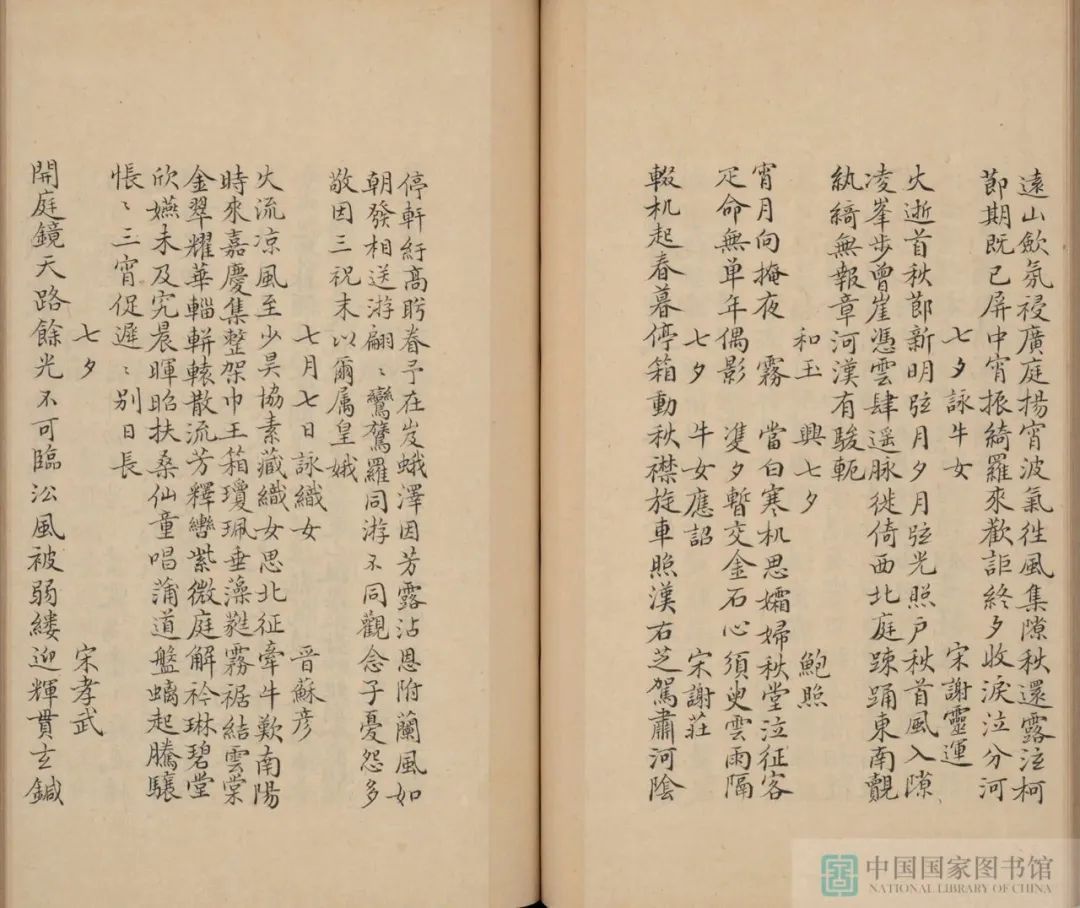 遠山歛氛祲廣庭揚宵波氣徃風集隙秋還露泫柯
節期既已屏中宵振綺羅來歡詎終夕收淚泣分河
七夕詠牛女 宋謝靈運
火逝首秋節新明弦月夕月弦光照户秋首風入隙
凌峯步曾崖憑雲肆遥脉徙倚西北庭踈踊東南覿
紈綺無報章河漢有駿軛
和王 興七夕 鮑照
宵月向掩夜 霧 當白寒机思孀婦秋堂泣征客
疋命無单年偶影 䨇夕暫交金石心須臾雲雨隔
七夕 牛女應詔 宋謝莊
輟机起春暮停箱動秋襟旋車照漢右芝駕肅河陰
停軒紆高眄眷予在岌峨澤因芳露沾恩附蘭風加
朝發相送游翩〻鸞鷟羅同游不同觀念子憂怨多
敬因三祝末以爾属皇娥
七月七日詠織女 晉蘇彦
火流凉風至少昊協素藏織女思北征牽牛歎南陽
時來嘉慶集整架巾玉箱瓊珮垂藻蕤霧裾結雲裳
金翠耀華輜軿轅散流芳釋轡紫微庭解衿琳碧堂
欣嬿未及究晨暉照扶桑仙童唱清道盤螭起騰驤
悵〻三宵促遲〻别日長
七夕 宋孝武
開庭鏡天路餘光不可臨㳂風被弱縷迎輝貫玄鍼
中国国家图书馆
NATIONAL LIBRARY OF CHINA